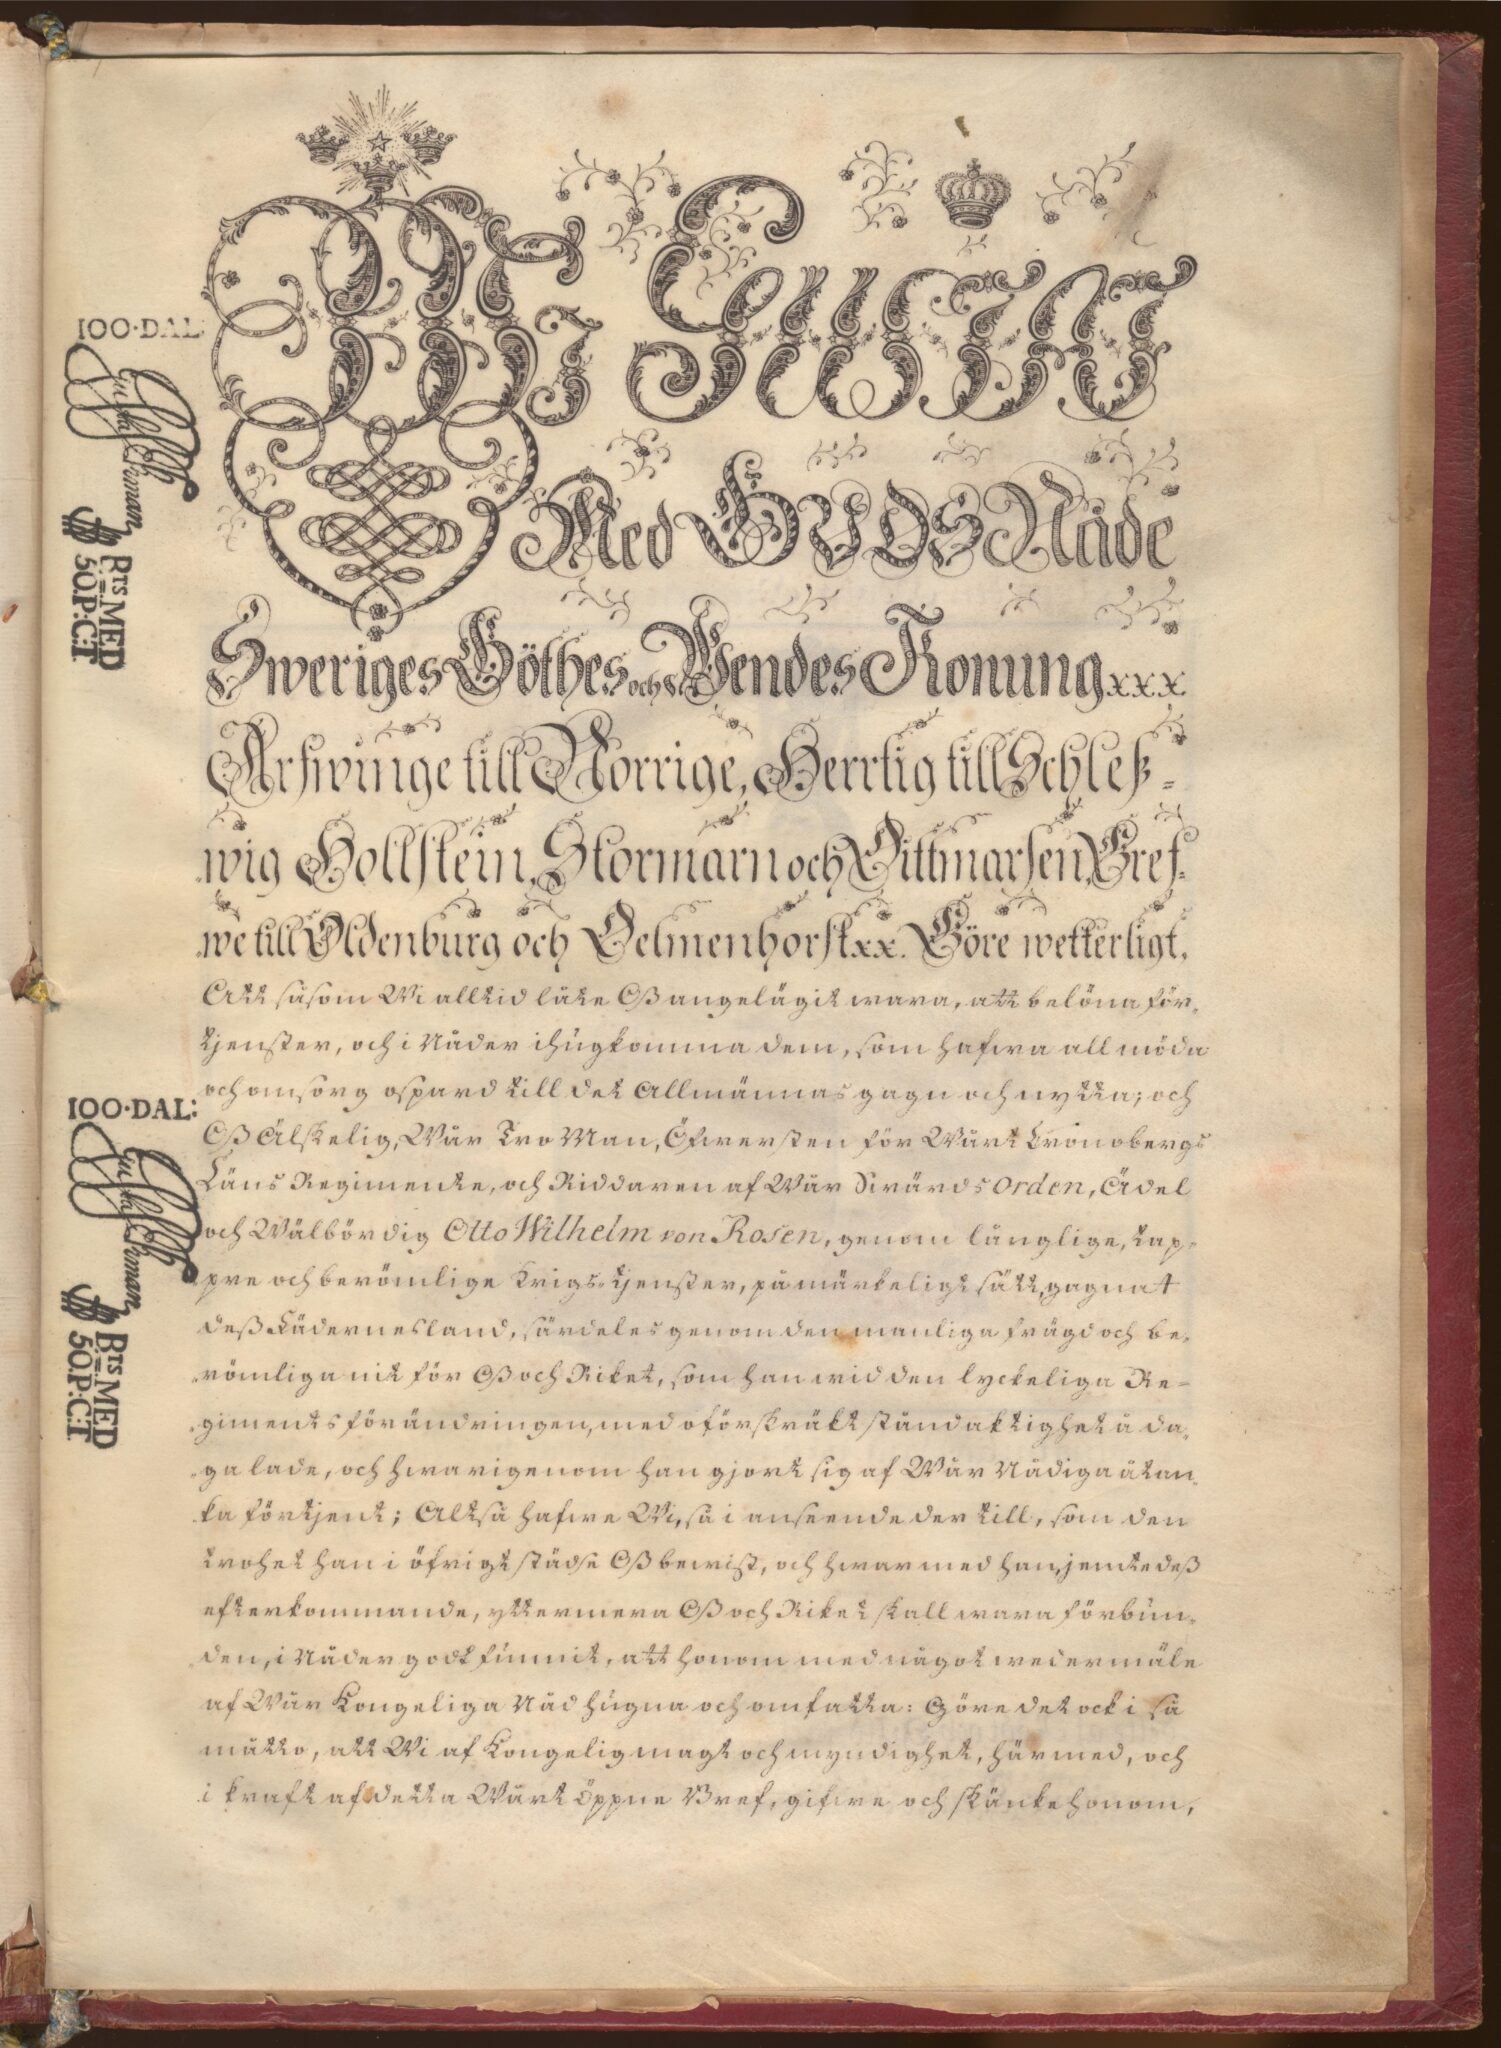 Wi Gustaf
Med GUDS Nåde
Sweriges Göthes och Wendes Konung xxx
Arfwinge till Norrige, Hertig till Schleß=
wig Hollstein, Stormarn och Dittmarsen, Gref-
we till Oldenburg och Delmenhorst xx. Göre wetterligt,
Att såsom Wi alltid låte Oß angelägit wara, att belöna för-
tjenster, och i Nåder ihugkomma dem, som hafwa all möda
och omsorg ospard till det Allmännas gagn och nytta; och
Oß Älskelig, Wår Tro Man, Öfwersten för Wårt Cronobergs
Läns Regimente, och Riddaren af Wår SwärdsOrden, Ädel
och Wälbördig Otto Wilhelm von Rosen, genom långlige, tap-
pre och berömlige Krigs-tjenster, på märkeligt sätt, gagnat
deß Fädernesland, särdeles genom den manliga frägd och be-
römliga nit för Oß och Riket, som han wid den lyckeliga Re-
giments förändringen, med oförskräkt ståndaktighet å da-
ga lade, och hwarigenom han gjort sig af Wår Nådiga åtan-
ka förtjent; Altså hafwe Wi, så i anseende dertill, som den
trohet han i öfrigt städse Oß bewist, och hwarmed han, jemte deß
efterkommande, yttermera Oß och Riket skall wara förbun-
den, i Nåder godt funnit, att honom med något wedermäle
af Wår Kongeliga Nåd hugna och omfatta: Göre det ock i så
måtto, att Wi af Kongelig magt och myndighet, härmed, och
i kraft af detta Wårt öppne Bref, gifwe och skänke honom,
100·DAL:
Bts MED
50.P:C:T
100·DAL:
Bts MED
50.P:C:T